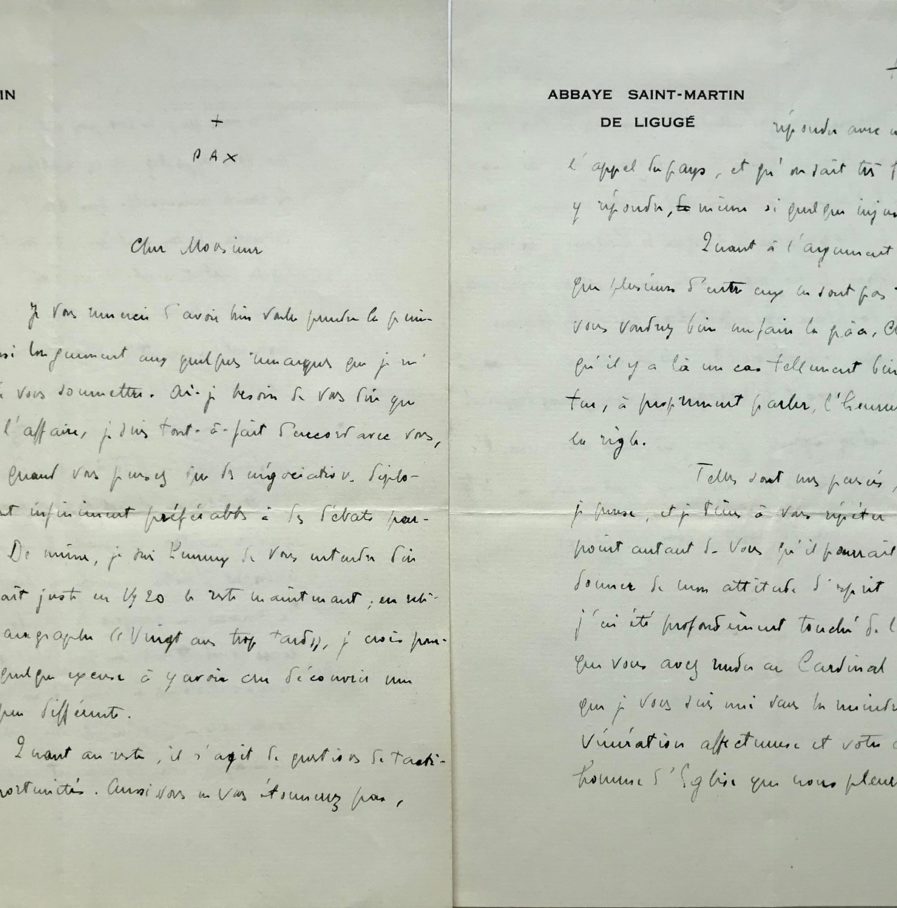 IN
+
PAX
Cher Monsieur
Je vous remercie d'avoir bien voulu prendre la pein-
si longuement aux quelques remarques que je m'
vous soumettre. Ai-je besoin de vous dire que
l'affaire, je suis tout-à-fait d'accord avec vous,
quand vous pensez que des négociations diplo-
nt infiniment préférables à des débats par-
De même, je suis heureux de vous entendre dire
ait juste en 1920 le reste maintenant ; en reli-
aragraphe « Vingt ans trop tard », je crois pou-
quelque excuse à y avoir cru découvrir une
peu différente.
Quant au reste, il s'agit de questions de tacti-
portunités. Aussi vous ne vous étonnerez pas,
ABBAYE SAINT-MARTIN
DE LIGUGÉ
répondre avec
l'appel du pays, et qu'on sait très
y répondre, même si quelque inju
Quant à l'argument
que plusieurs d'entre eux ne sont pas
vous voudrez bien me faire la grâce,
qu'il y a là un cas tellement bien
tue, à proprement parler, l'heureu
la règle.
Telles sont mes pensées,
je pense, et je tiens à vous répéter
point autant de vous qu'il pourrait
donner de mon attitude d'esprit
j'ai été profondément touché de l'
que vous avez rendu au Cardinal
que je vous suis uni dans la
vénération affectueuse et votre
homme d'Église que nous pleur